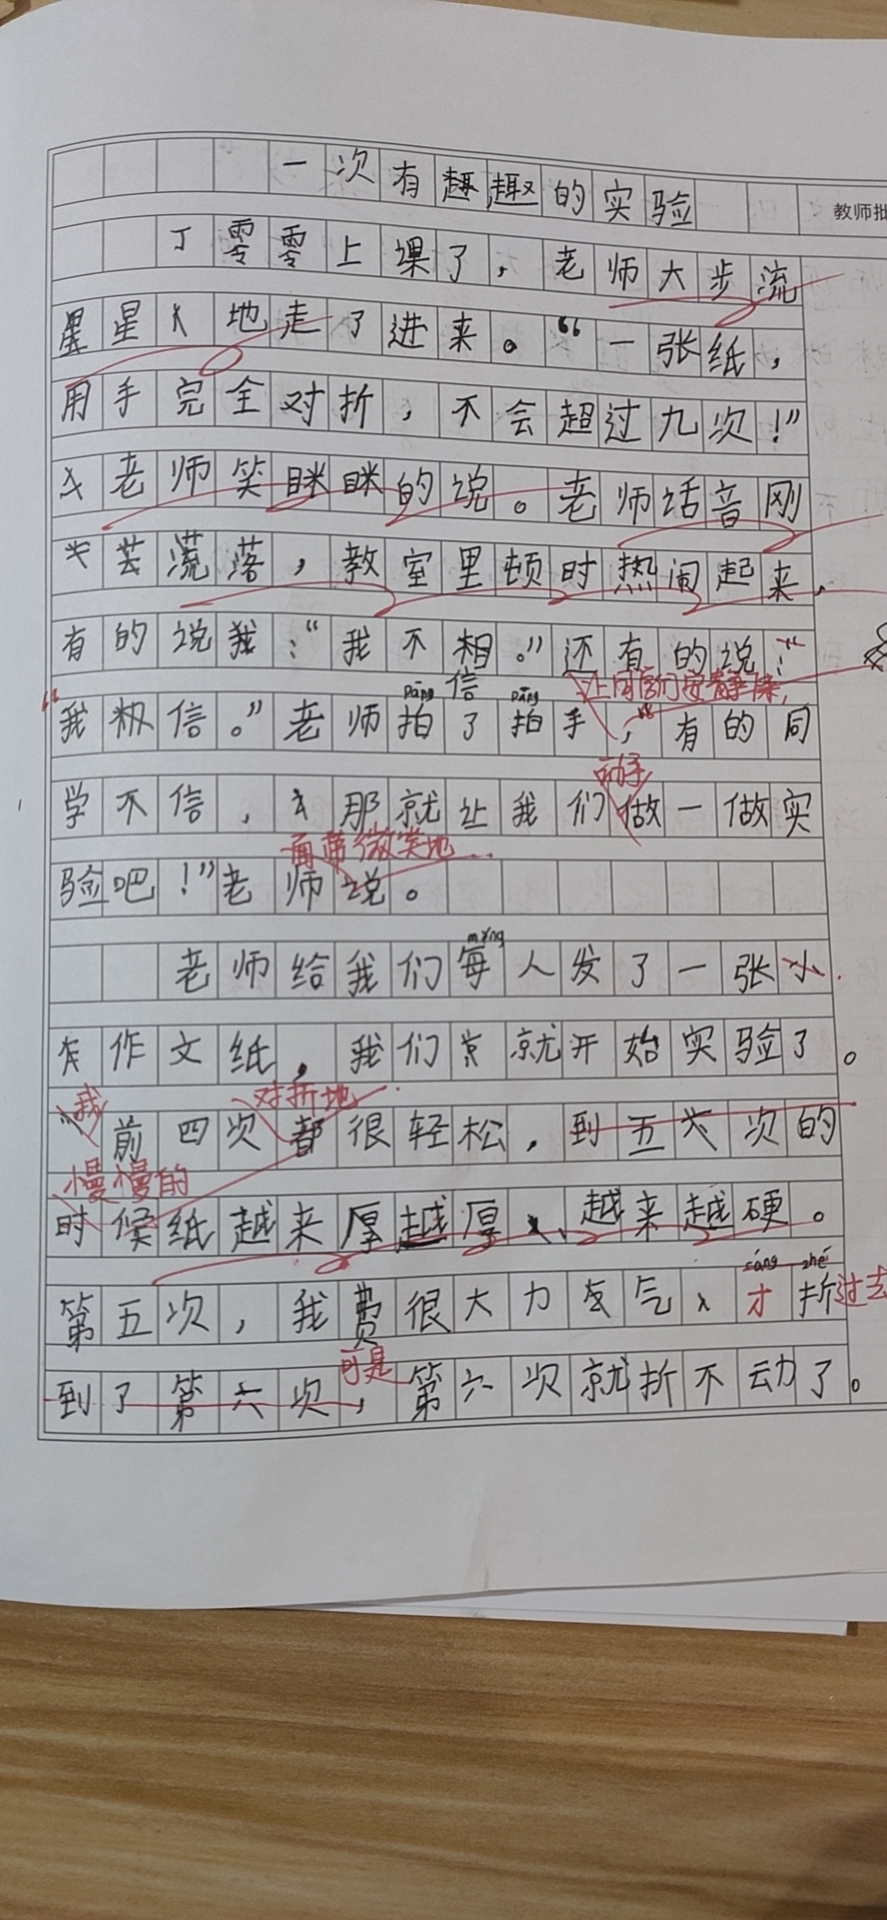 一次有趣的实验
教师批
丁零零上课了，老师大步流
星星地走了进来。“一张纸，
用手完全对折，不会超过九次！”
老师笑眯眯的说。老师话音刚
落，教室里顿时热闹起来，
有的说我：“我不相信。”还有的说：“
“我极信。”老师拍了拍手，“有的同
pāng pāng
让同学们安静下来，
学不信，那就让我们做一做实
动手
验吧！”老师说。
面带微笑地
老师给我们每人发了一张小
mǎng
作文纸，我们就开始实验了。
我
对折地
前四次都很轻松，到五六次的
慢慢的
时候纸越来越厚越厚、越来越硬。
第五次，我费很大力气，才折过去
cáng zhé
到了第六次，第六次就折不动了。
可是